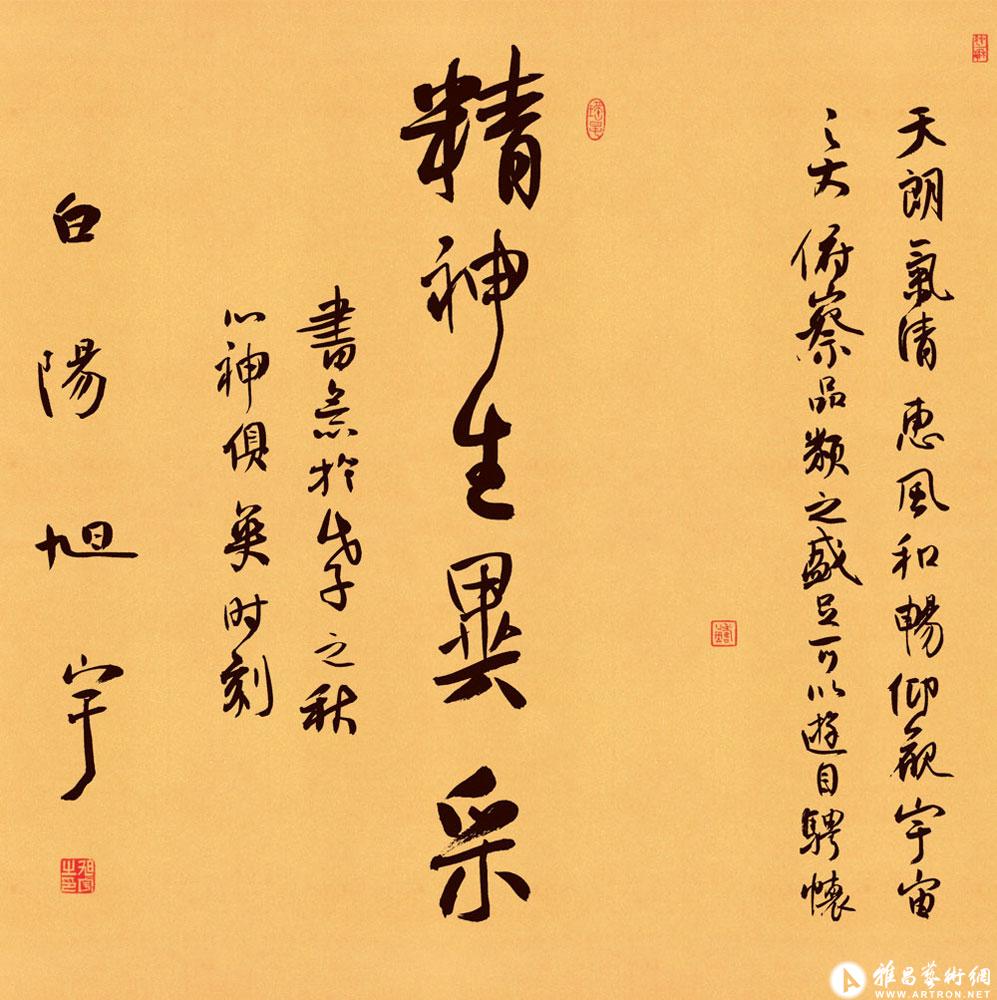 天朗氣清惠風和暢仰觀宇宙
之大俯察品類之盛足可以遊目騁懷
精神生異采
書於戊子之秋
心神俱时刻
白陽旭宇
旭宇之印
雅昌藝術網
WWW.ARTRON.NET